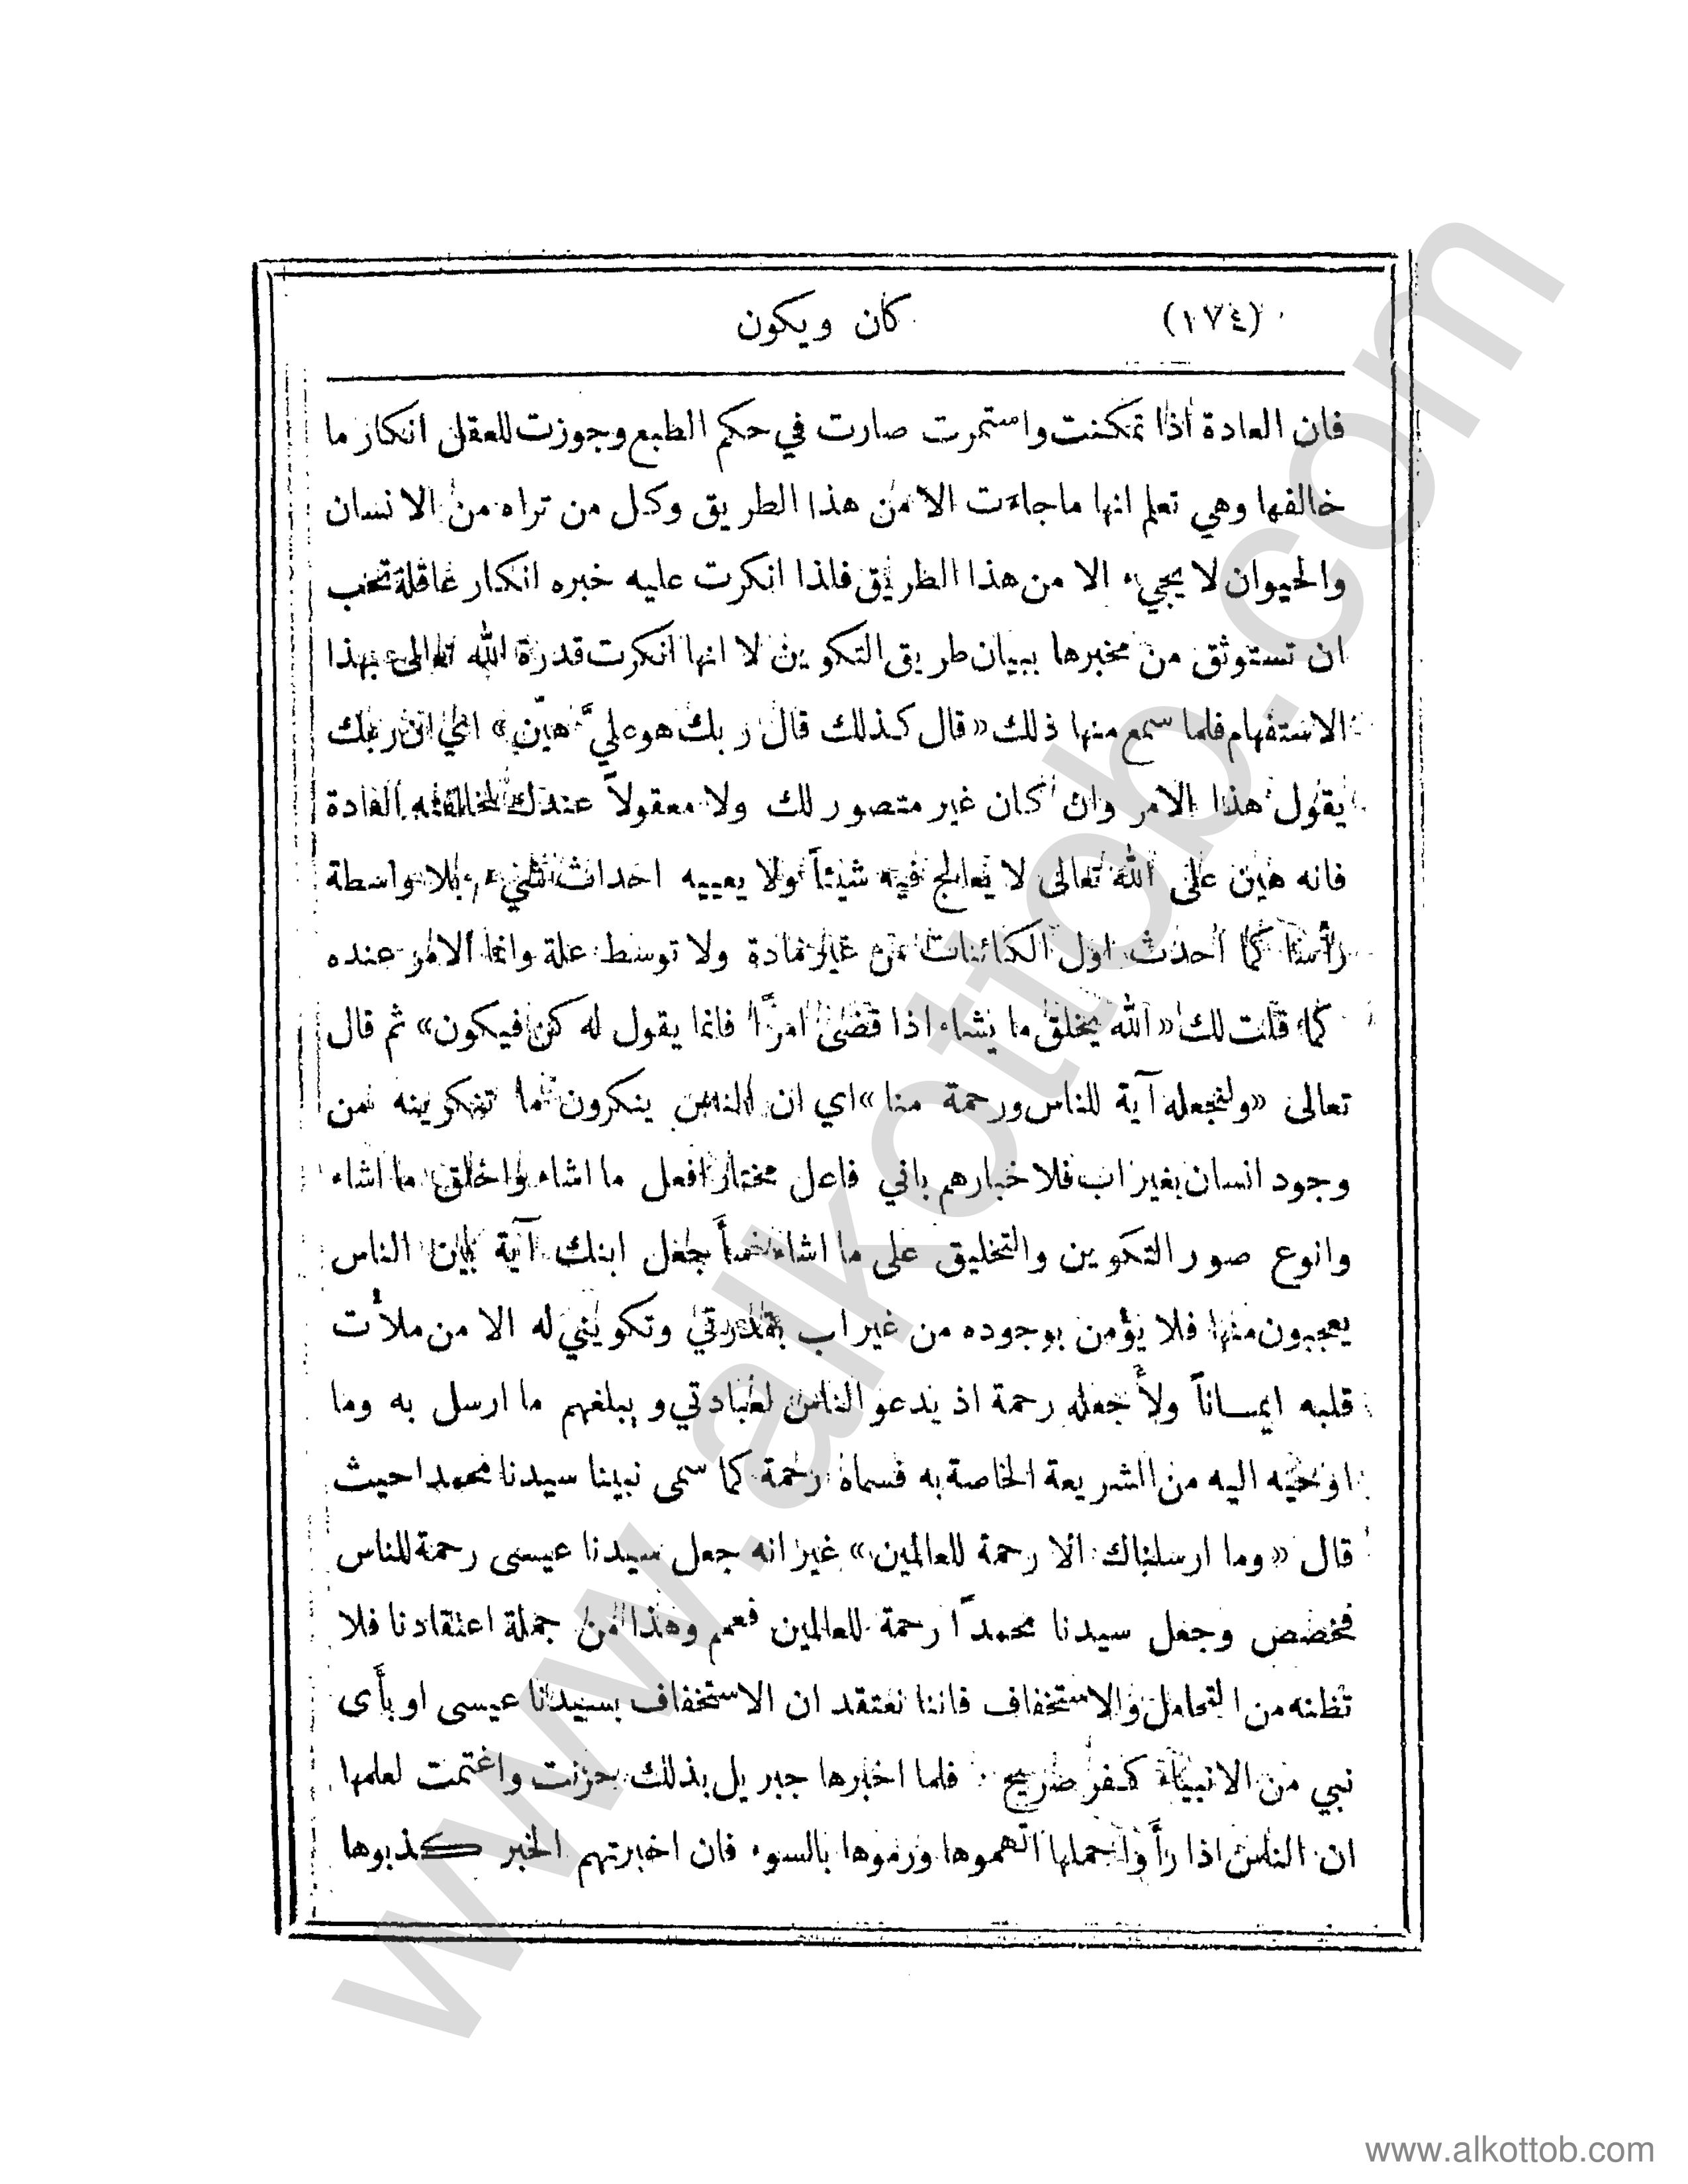 (١٧٤) كان ويكون
فان العادة اذا تمكنت واستمرت صارت في حكم الطبع وجوزت للعقل انكار ما
خالفها وهي تعلم انها ماجاءت الا من هذا الطريق وكل من تراه من الانسان
والحيوان لا يجيء الا من هذا الطريق فلذا انكرت عليه خبره انكار عاقلة تحب
ان تستوثق من مخبرها ببيان طريق التكوين لا انها انكرت قدرة الله تعالى بهذا
الاستفهام فلما سمع منها ذلك «قال كذلك قال ربك هو عليَّ هيّن» اي ان ربك
يقول هذا الامر وان كان غير متصور لك ولا معقولاً عندك لمخالفته العادة
فانه هين على الله تعالى لا يعالج فيه شيئاً ولا يعييه احداث شيء بلا واسطة
رأساً كما احدث اول الكائنات من غير مادة ولا توسط علة وانما الامر عنده
كما قلت لك «الله يخلق ما يشاء اذا قضى امرًا فانما يقول له كن فيكون» ثم قال
تعالى «ولنجعله آية للناس ورحمة منا» اي ان الناس ينكرون ما تنكرينه من
وجود انسان بغير اب فلاخبارهم باني فاعل مختار افعل ما اشاء واخلق ما اشاء
وانوع صور التكوين والتخليق على ما اشاء اجعل ابنك آية بين الناس
يعجبون منها فلا يؤمن بوجوده من غير اب بقدرتي وتكويني له الا من ملأت
قلبه ايمـاناً ولأجعله رحمة اذ يدعو الناس لعبادتي ويبلغهم ما ارسل به وما
اوحيه اليه من الشريعة الخاصة به فسماه رحمة كما سمى نبينا سيدنا محمدا حيث
قال «وما ارسلناك الا رحمة للعالمين» غير انه جعل سيدنا عيسى رحمة للناس
فخصص وجعل سيدنا محمداً رحمة للعالمين فعمم وهذا من جملة اعتقادنا فلا
تظنه من التحامل والاستخفاف فاننا نعتقد ان الاستخفاف بسيدنا عيسى او بأى
نبي من الانبياء كفر صريح · فلما اخبرها جبريل بذلك حزنت واغتمت لعلمها
ان الناس اذا رأوا حملها اتهموها ورموها بالسوء فان اخبرتهم الخبر كذبوها
www.alkottob.com
www.alkottob.com